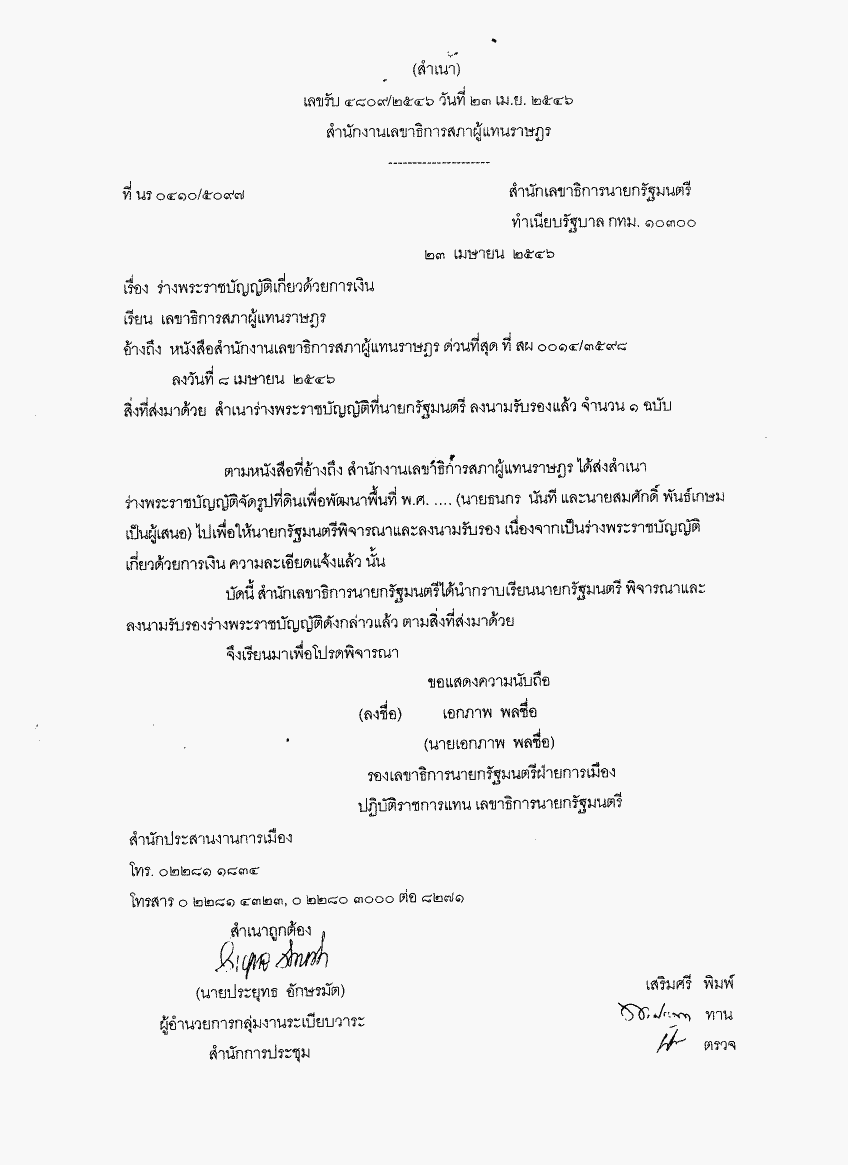 (สำเนา)
เลขรับ ๔๘๐๙/๒๕๔๖ วันที่ ๒๓ เม.ย. ๒๕๔๖
สำนักงานเลขาธิการสภาผู้แทนราษฎร
---------------------
ที่ นร ๐๔๑๐/๕๐๙๗ สำนักเลขาธิการนายกรัฐมนตรี
ทำเนียบรัฐบาล กทม. ๑๐๓๐๐
๒๓ เมษายน ๒๕๔๖
เรื่อง ร่างพระราชบัญญัติเกี่ยวด้วยการเงิน
เรียน เลขาธิการสภาผู้แทนราษฎร
อ้างถึง หนังสือสำนักงานเลขาธิการสภาผู้แทนราษฎร ด่วนที่สุด ที่ สผ ๐๐๑๔/๓๕๙๘
ลงวันที่ ๘ เมษายน ๒๕๔๖
สิ่งที่ส่งมาด้วย สำเนาร่างพระราชบัญญัติที่นายกรัฐมนตรี ลงนามรับรองแล้ว จำนวน ๑ ฉบับ
ตามหนังสือที่อ้างถึง สำนักงานเลขาธิการสภาผู้แทนราษฎร ได้ส่งสำเนา
ร่างพระราชบัญญัติจัดรูปที่ดินเพื่อพัฒนาพื้นที่ พ.ศ. .... (นายธนกร นันที และนายสมศักดิ์ พันธ์เกษม
เป็นผู้เสนอ) ไปเพื่อให้นายกรัฐมนตรีพิจารณาและลงนามรับรอง เนื่องจากเป็นร่างพระราชบัญญัติ
เกี่ยวด้วยการเงิน ความละเอียดแจ้งแล้ว นั้น
บัดนี้ สำนักเลขาธิการนายกรัฐมนตรีได้นำกราบเรียนนายกรัฐมนตรี พิจารณาและ
ลงนามรับรองร่างพระราชบัญญัติดังกล่าวแล้ว ตามสิ่งที่ส่งมาด้วย
จึงเรียนมาเพื่อโปรดพิจารณา
ขอแสดงความนับถือ
(ลงชื่อ) เอกภาพ พลซื่อ
(นายเอกภาพ พลซื่อ)
รองเลขาธิการนายกรัฐมนตรีฝ่ายการเมือง
ปฏิบัติราชการแทน เลขาธิการนายกรัฐมนตรี
สำนักประสานงานการเมือง
โทร. ๐๒๒๘๑ ๑๘๓๔
โทรสาร ๐ ๒๒๘๑ ๔๓๒๓, ๐ ๒๒๘๐ ๓๐๐๐ ต่อ ๘๒๗๑
สำเนาถูกต้อง
(นายประยุทธ อักษรมัต)
ผู้อำนวยการกลุ่มงานระเบียบวาระ
สำนักการประชุม
เสริมศรี พิมพ์
ทาน
ตรวจ